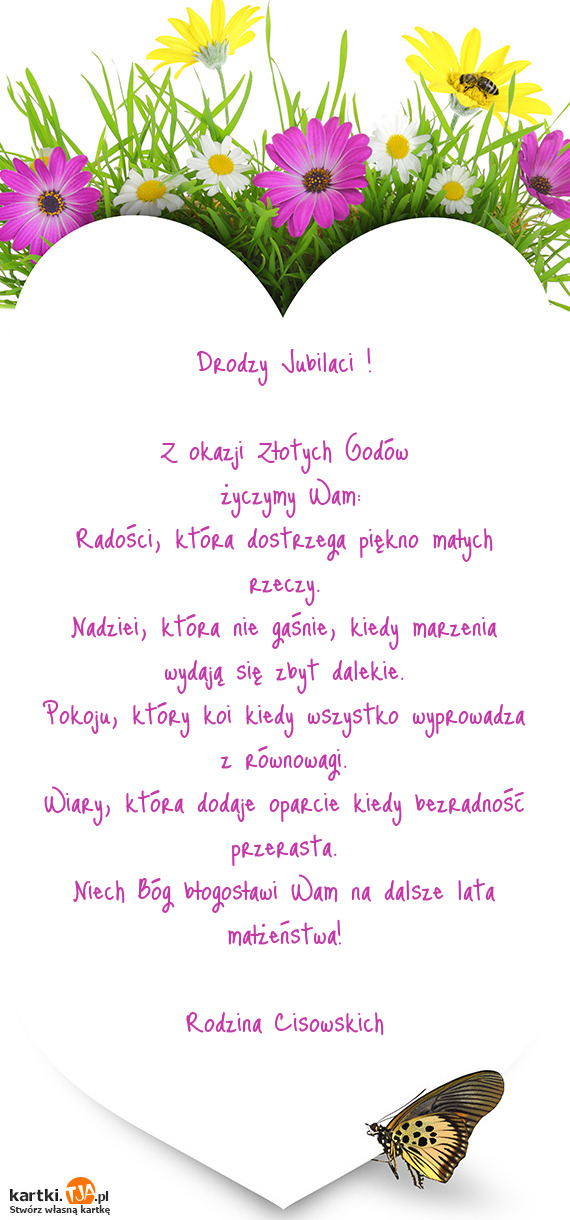 Drodzy Jubilaci !
Z okazji Złotych Godów
życzymy Wam:
Radości, która dostrzega piękno małych
rzeczy.
Nadziei, która nie gaśnie, kiedy marzenia
wydają się zbyt dalekie.
Pokoju, który koi kiedy wszystko wyprowadza
z równowagi.
Wiary, która dodaje oparcie kiedy bezradność
przerasta.
Niech Bóg błogosławi Wam na dalsze lata
małżeństwa!
Rodzina Cisowskich
kartki.TJA.pl
Stwórz własną kartkę